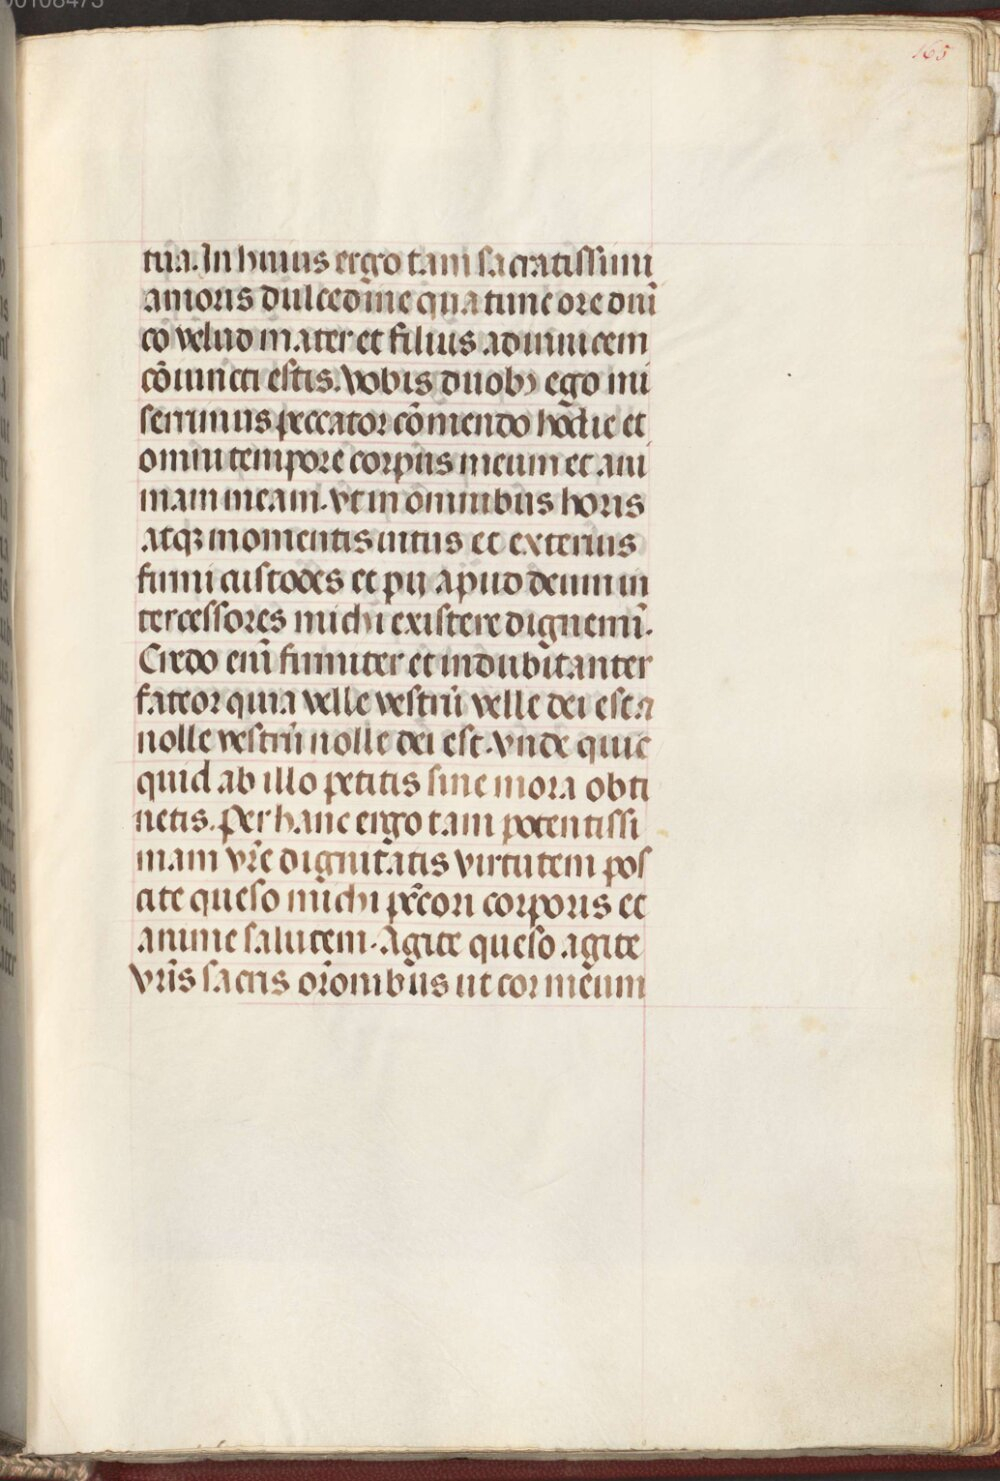 165
tua. In huius ergo tam sacratissimi
amoris dulcedine qua tunc ore dnī
co velud mater et filius adinuicem
cōiuncti estis. Vobis duobꝫ ego mi
serrimus peccator cōmendo hodie et
omni tempore corpus meum et ani
mam meam. vt in omnibus horis
atqꝫ momentis intus et exterius
firmi custodes et pij apud deum in
tercessores michi existere dignemī.
Credo enī firmiter et indubitanter
fateor quia velle vestrū velle dei est ⁊
nolle vestrū nolle dei est. vnde quic
quid ab illo petitis sine mora obti
netis. Per hanc ergo tam potentissi
mam vr̄e dignitatis virtutem pos
cite queso michi pctōri corporis et
anime salutem. Agite queso agite
vrīs sacris orōnibus ut cor meum